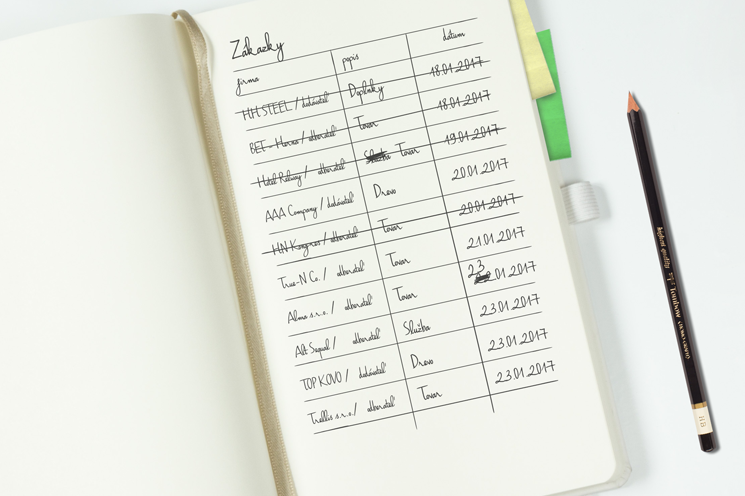 Zákazky
firma popis dátum
HH STEEL / dodávateľ Doplnky 18.01.2017
BET - Hores / odberateľ Tovar 18.01.2017
Hotel Relway / odberateľ Služba Tovar 19.01.2017
AAA Company / dodávateľ Drevo 20.01.2017
HN Kongres / odberateľ Tovar 20.01.2017
True-N Co. / odberateľ Tovar 21.01.2017
Alma s.r.o. / odberateľ Tovar 23.01.2017
Alt Sequal / odberateľ Služba 23.01.2017
TOP KOVO / dodávateľ Drevo 23.01.2017
Trellis s.r.o. / odberateľ Tovar 23.01.2017
Tombow
HB